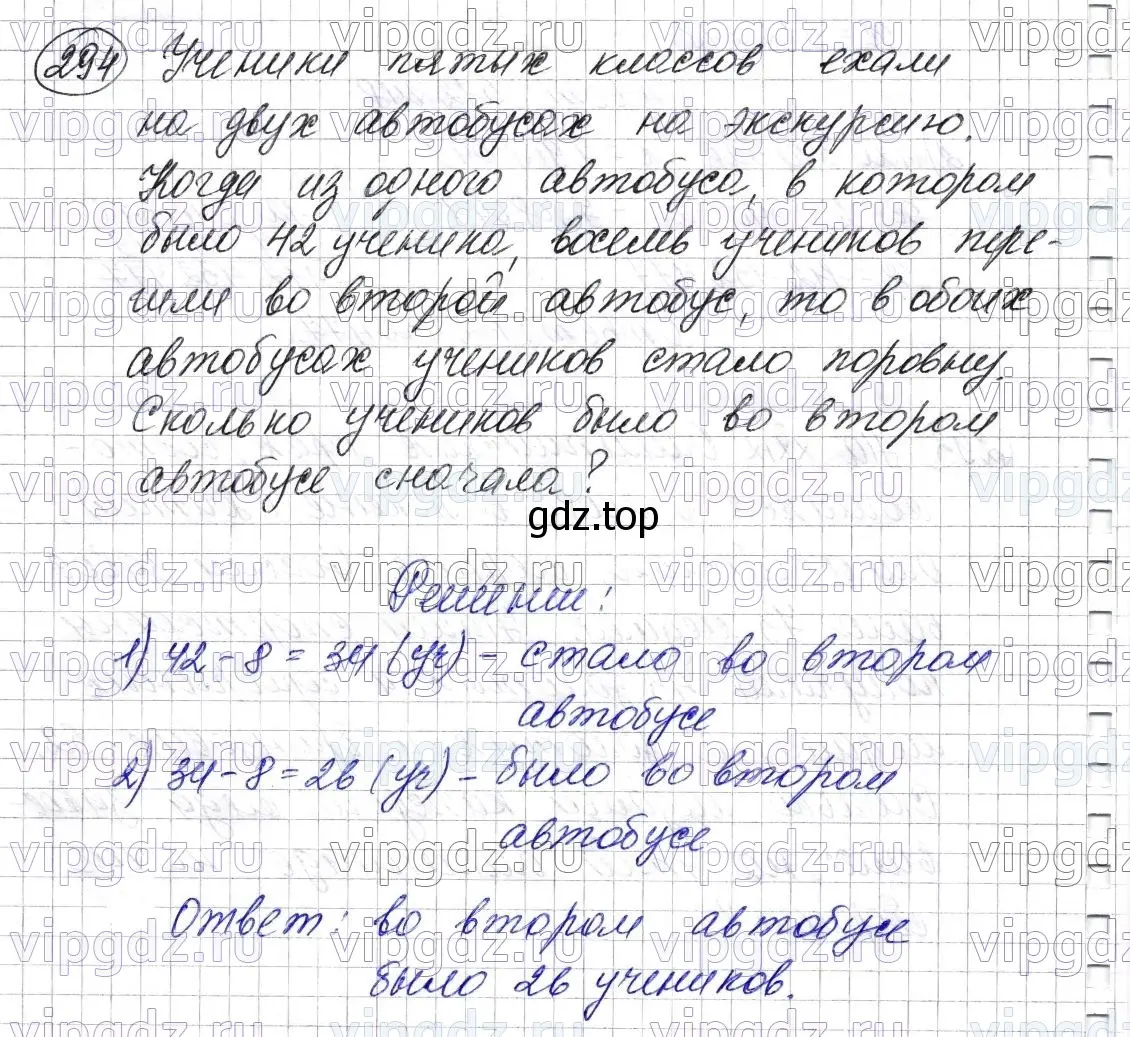 294 Ученики пятых классов ехали
на двух автобусах на экскурсию.
Когда из одного автобуса, в котором
было 42 ученика, восемь учеников пере-
шли во второй автобус, то в обоих
автобусах учеников стало поровну.
Сколько учеников было во втором
автобусе сначала?
gdz.top
Решении:
1) 42 - 8 = 34 (уч) - стало во втором
автобусе
2) 34 - 8 = 26 (уч) - было во втором
автобусе
Ответ: во втором автобусе
было 26 учеников.